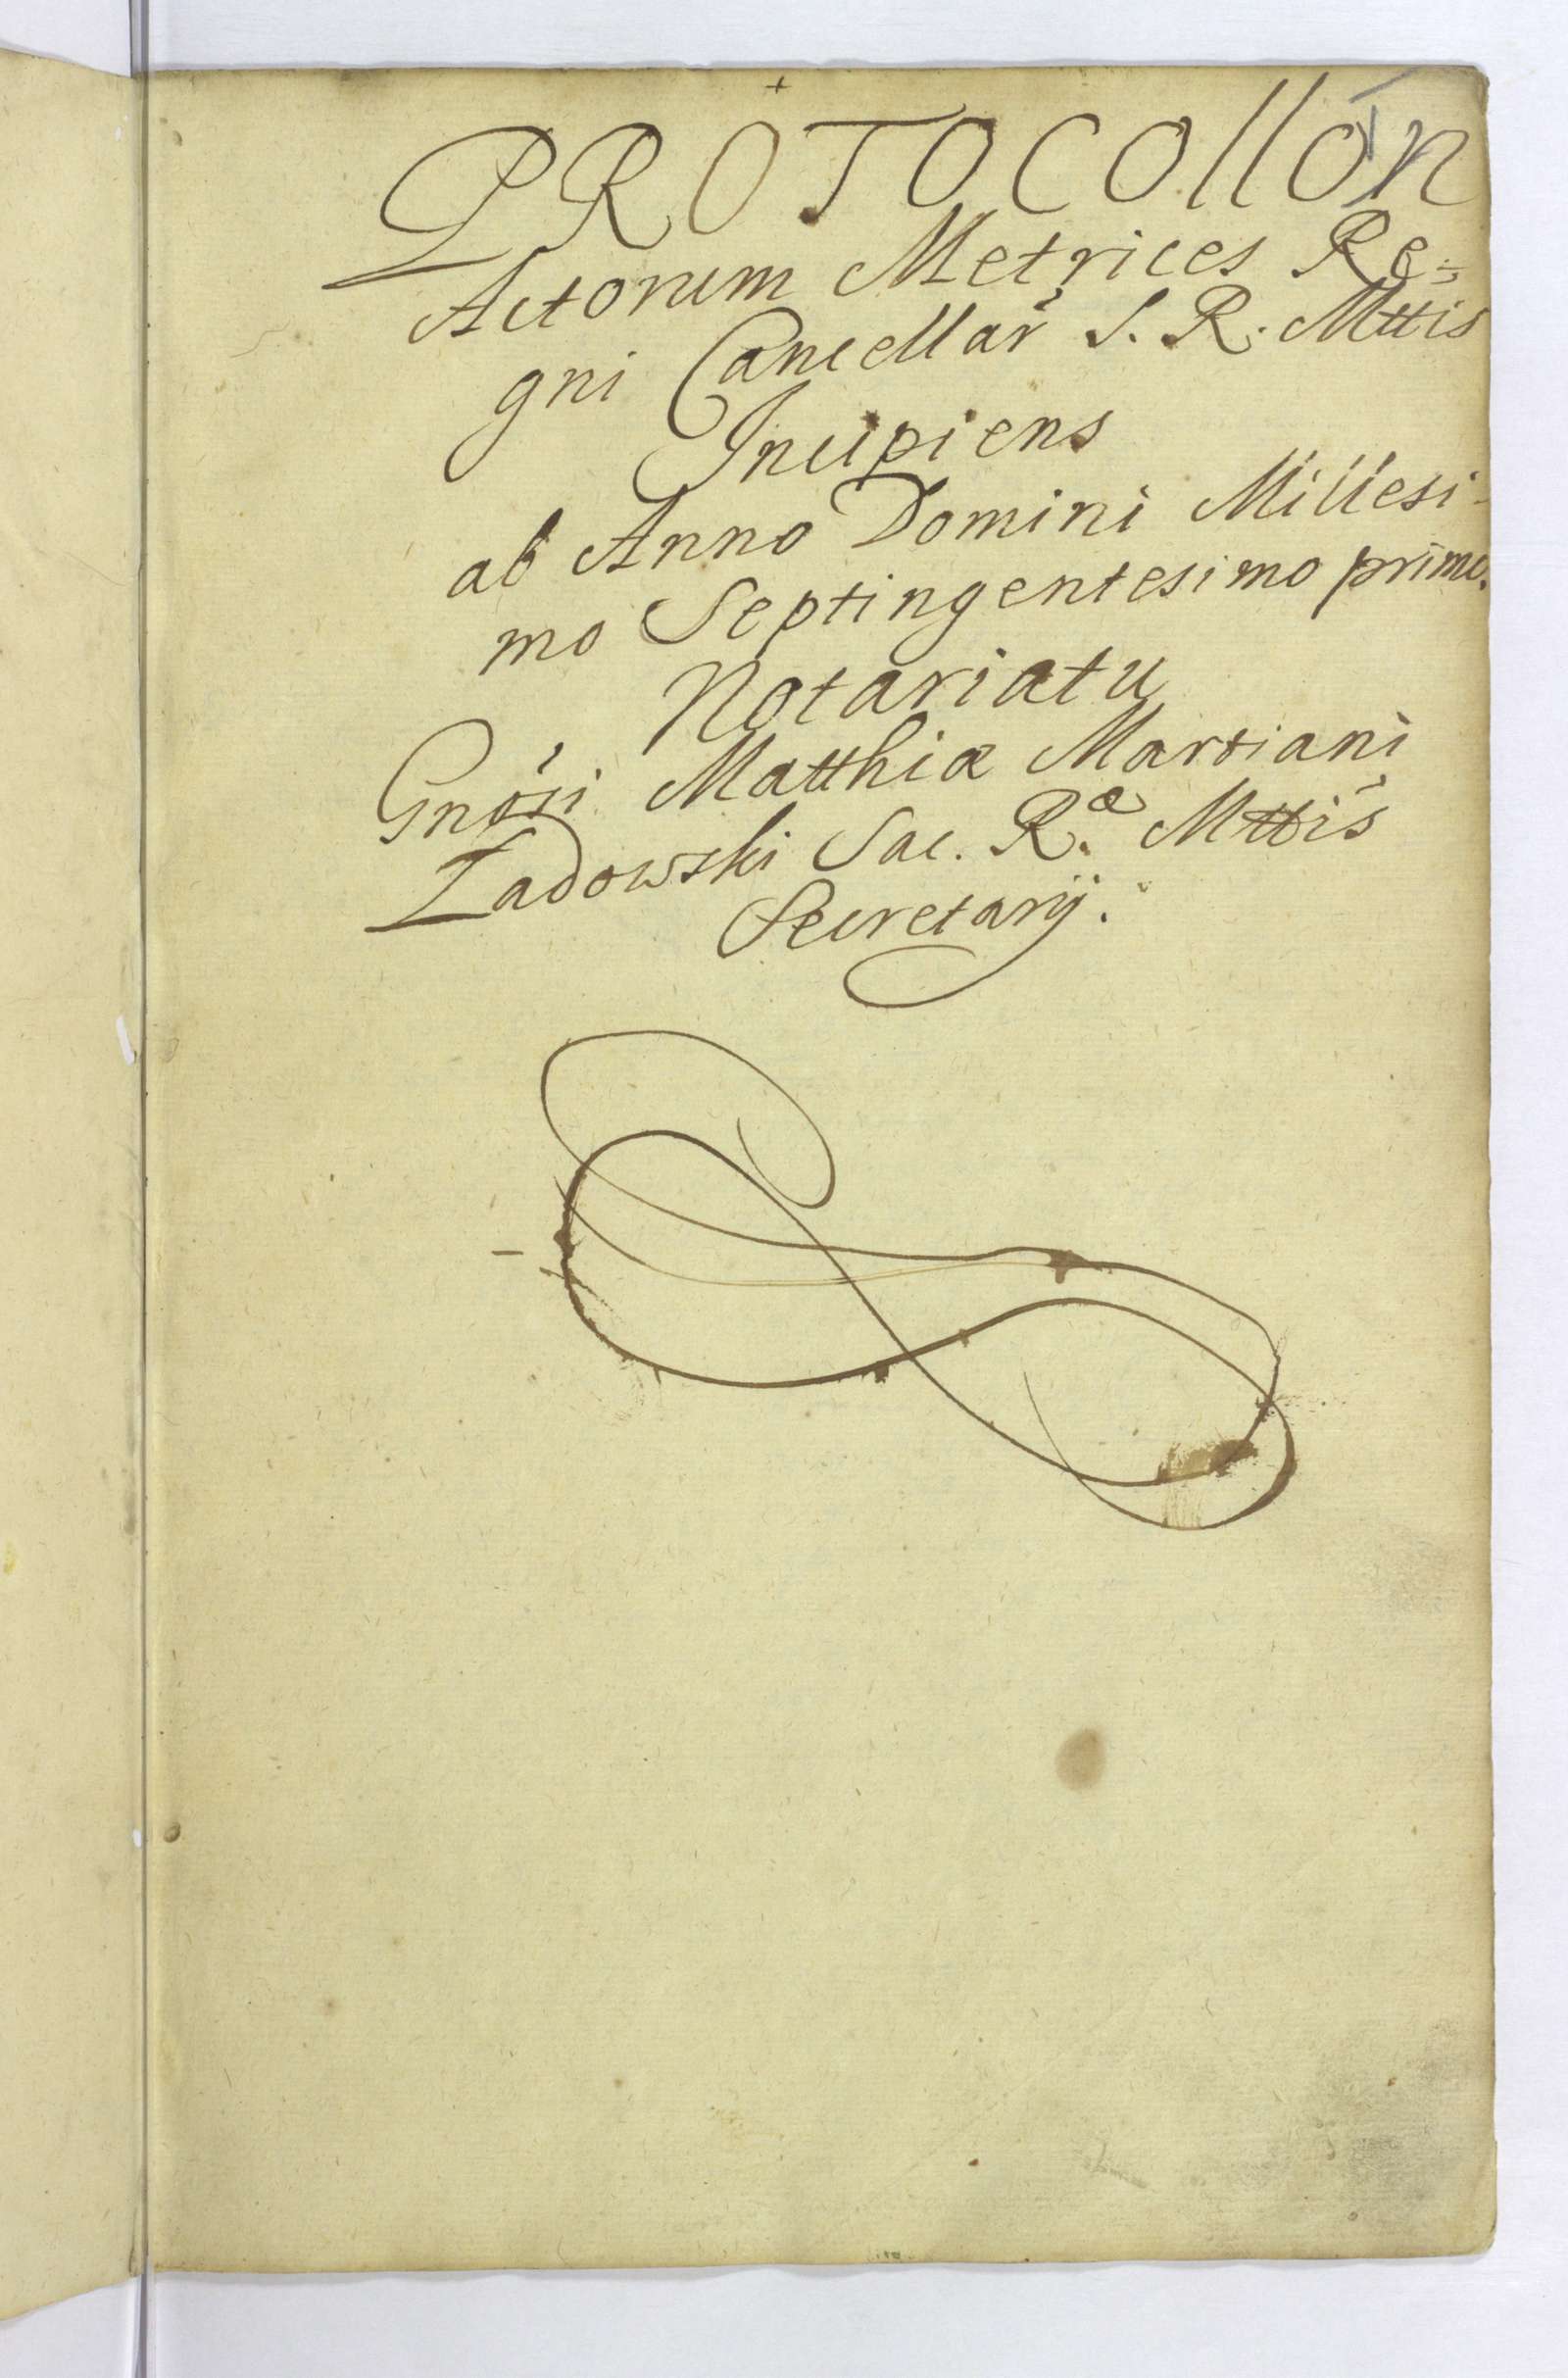 PROTOCollon
Actorum Metrices Re=
gni Cancellar S. R. Mttis
Incipiens
ab Anno Domini Millesi-
mo Septingentesimo primo.
Notariatu
Gnosi Matthiæ Martiani
Ladowski Sac. R.æ Mttis
Secretarij.